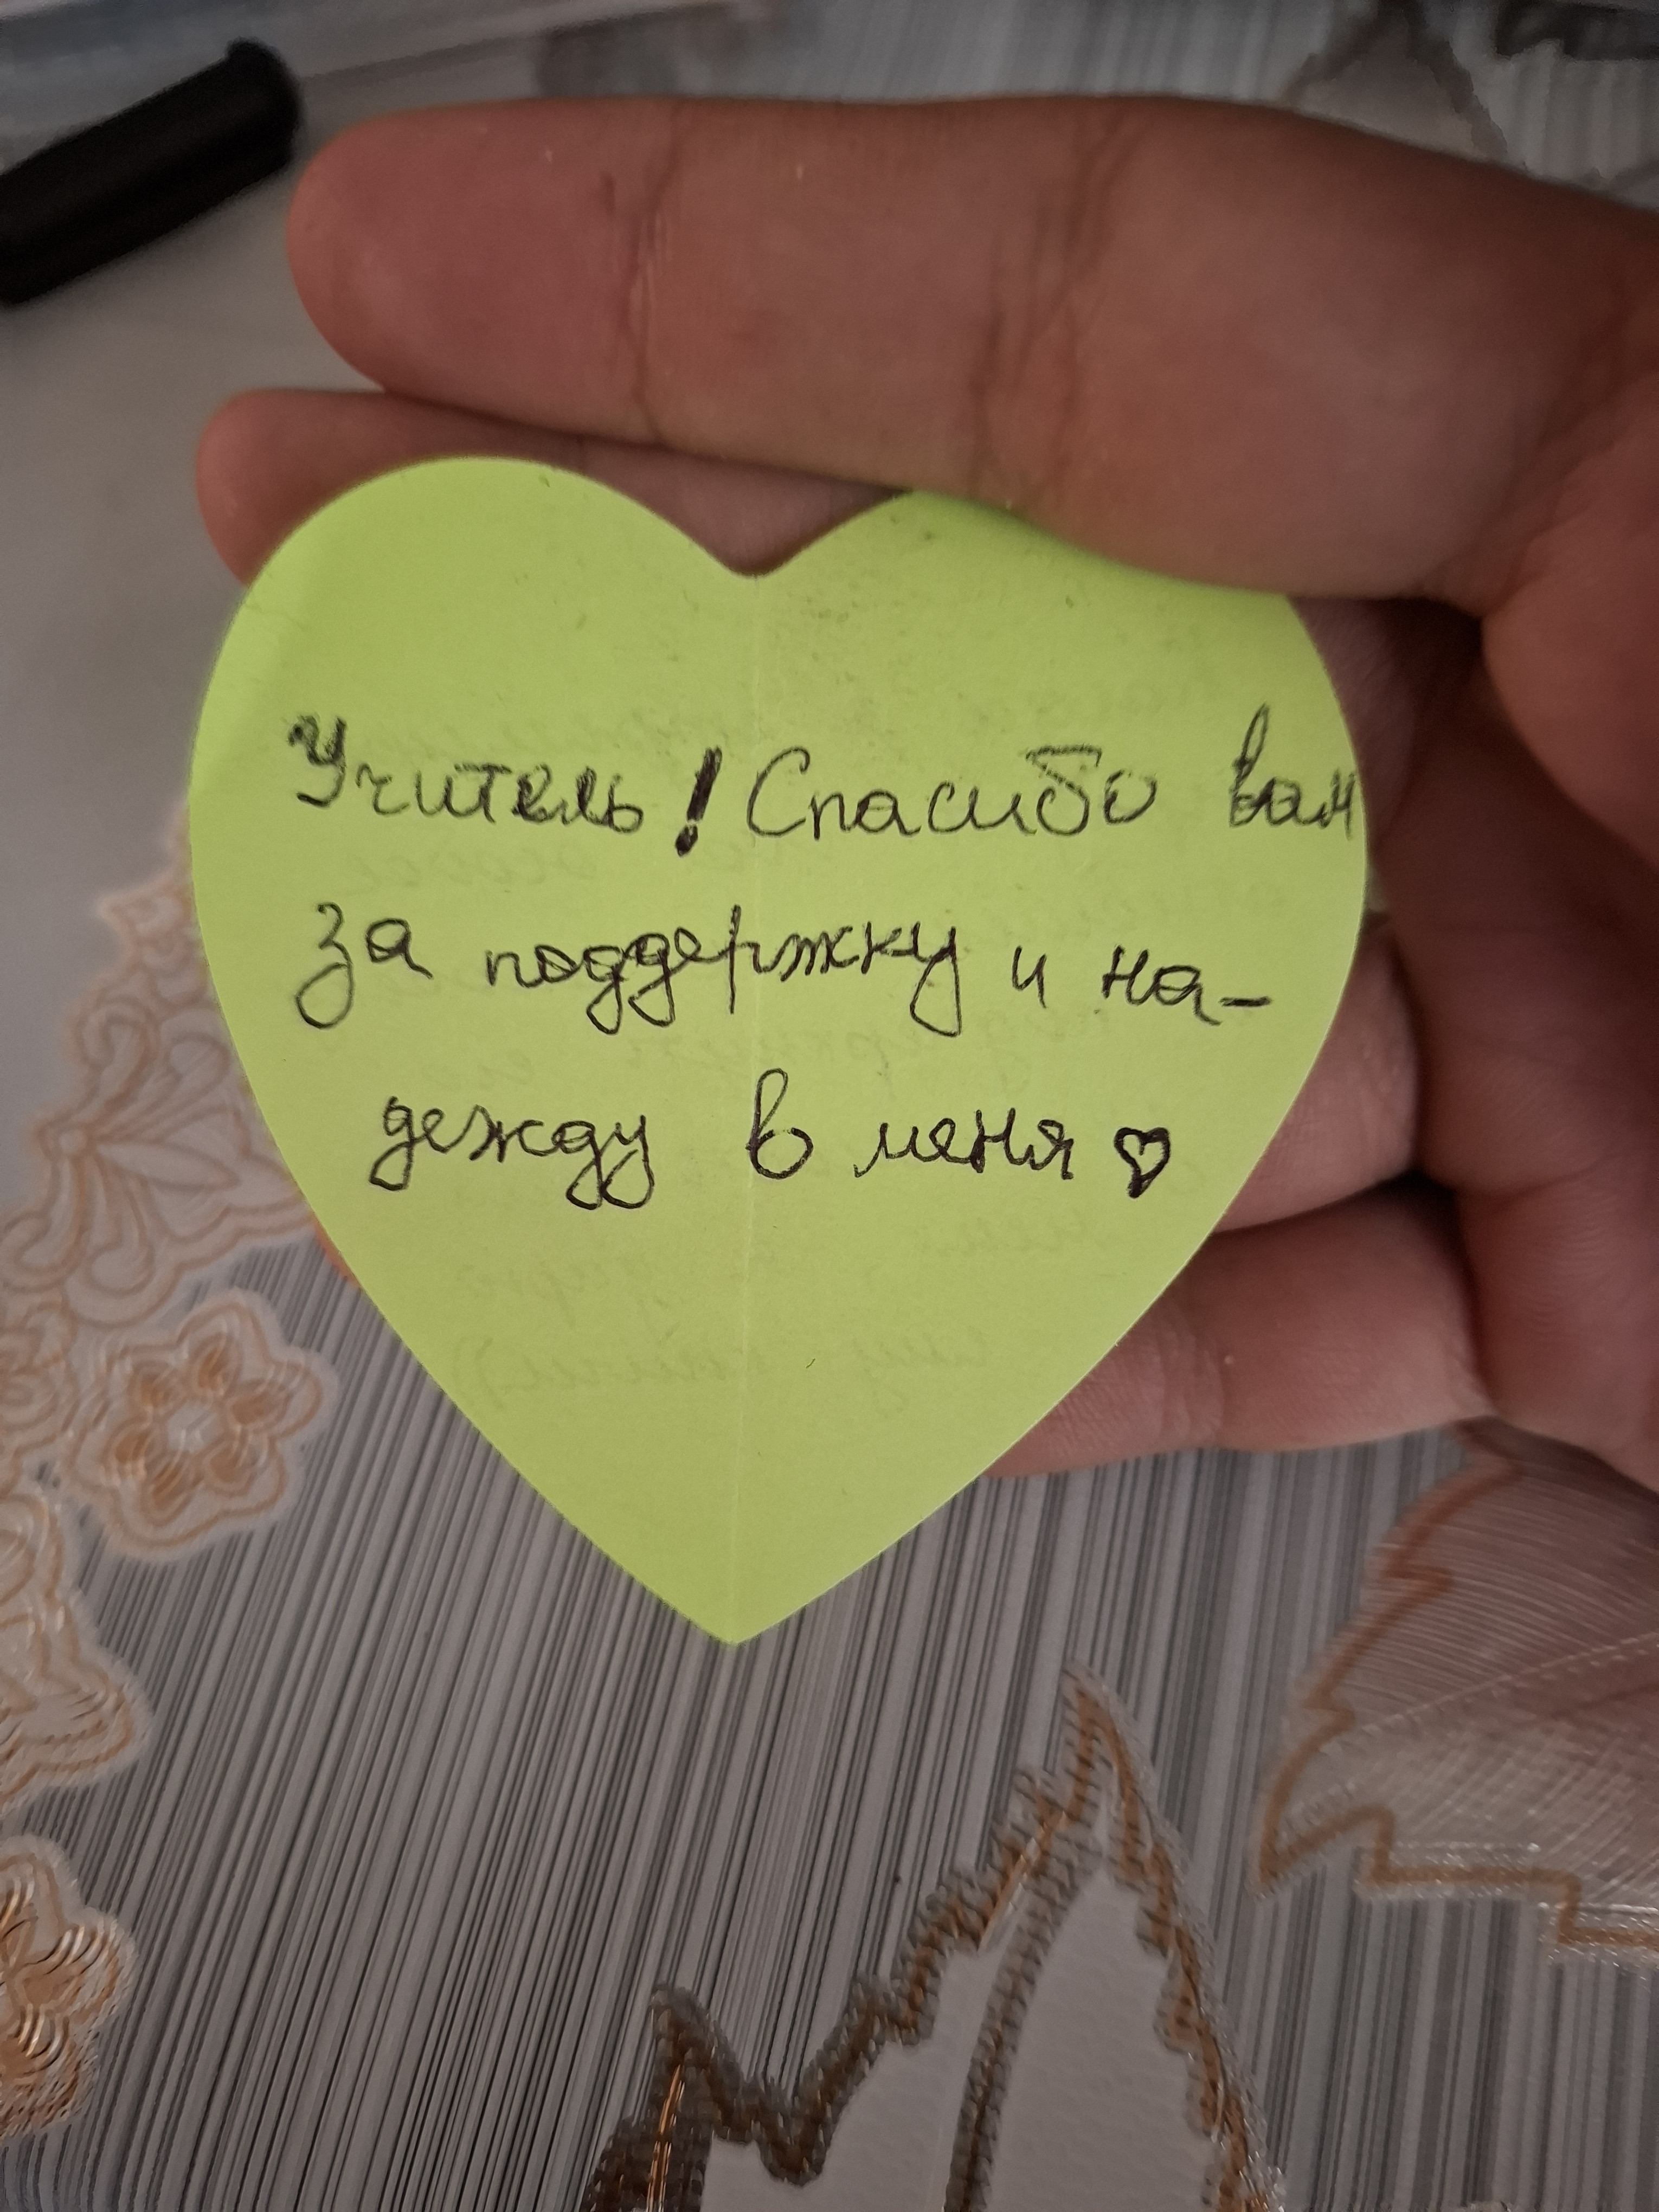 Учитель! Спасибо вам
за поддержку и на-
дежду в меня ♡